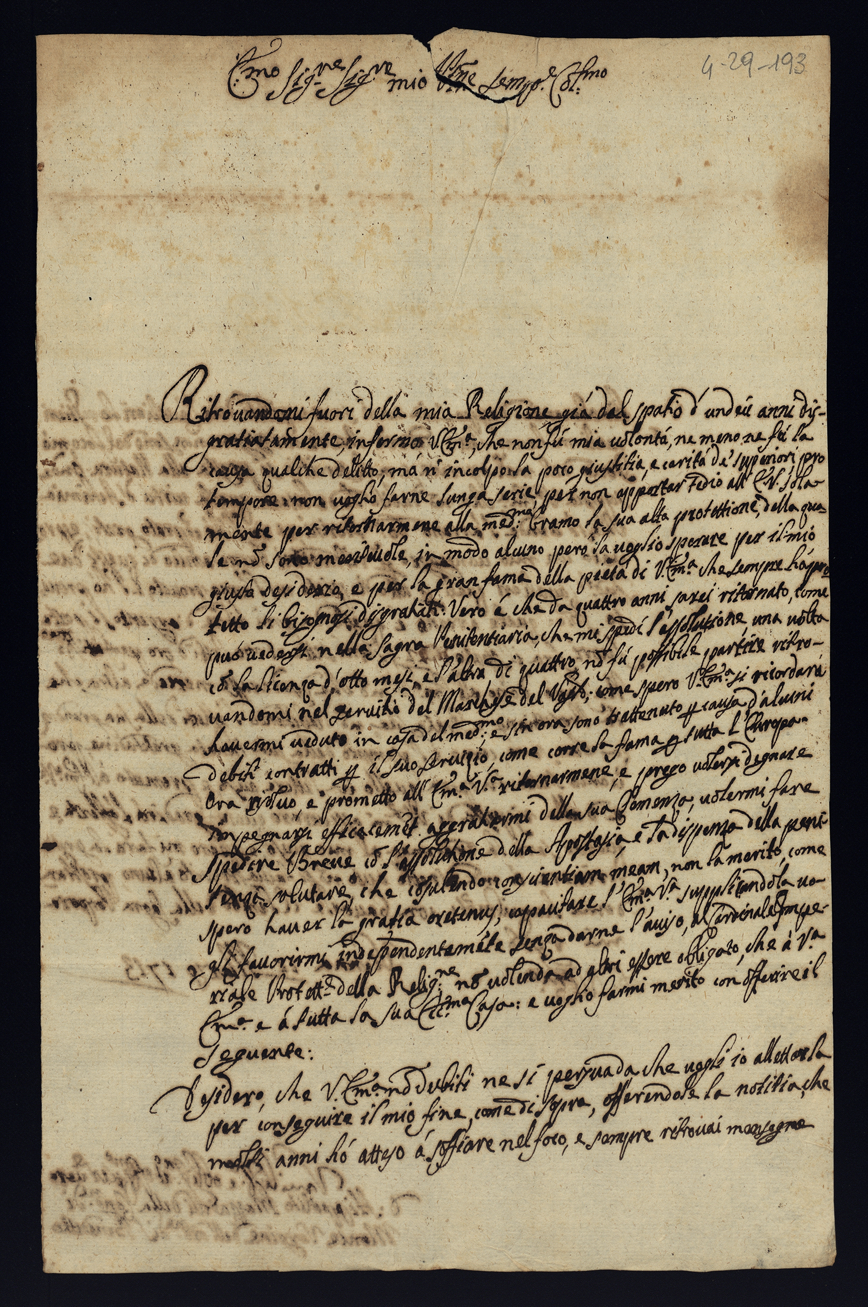 4-29-193
E.mo Sig.re Sig.re mio P.rone semp.e Col.mo
Ritrovandomi fuori della mia Religione giá dal spatio d'undeci anni dis-
gratiatamente, informo V. Em.a, che non fú mia volontá, ne meno ne fú la
causa qualche delitto, má n'incolpo la poco giustitia, e caritá de' superiori pro
tempore: non voglio farne lunga serie per non apportar tedio all' E.V. sola-
mente per ritornarmene alla med.ma bramo la sua alta protettione, della qua
le nõ sono merievole, in modo alcuno peró la voglio sperare per il mio
giusto desiderio, e per la gran fama della pietá di V. Em.a che sempre há pro
tetto li bisognosi disgratiati. Vero é che da quattro anni sarei ritornato, come
puó vedersi nella Sagra Penitentiaria, che mi spedí l'assolutione una volta
cõ la licenza d'otto mesi, e l'altra di quattro, nõ fú possibile partire ritro-
vandomi nel servitio del Marchese del Vasto, come spero V. Em.a si ricordará
havermi veduto in casa del med.mo, e sin'ora sono trattenuto p causa d'alcuni
debiti contratti p il suo servigio, come corre la fama p tutta l'Europa.
Ora risolvo, e prometto all' Em.a V.a ritornarmene, e prego volersi degnare
impegnarsi efficacemẽte appresso della sua Clemenza, volermi fare
spedire Breve cõ l'assolutione della Apostasia, e la dispenza della peni
tenza salutare, che cõsulendo conscientiam meam, non la merito, come
spero haver la gratia oretenus, capacitare l'Em.a V.a supplicandola vo
gli favorirmi independentemẽte senza darne l'aviso, al Cardinale Impe-
riale Protett.re della Relig.ne nõ volendo ad altri essere obligato, che á V.a
Em.a e á tutta la sua Ecc.ma Casa: e voglio farmi merito con offerire il
seguente:
Desidero, che V. Em.a nõ dubiti ne si persuada che vogli io allettarla
per conseguire il mio fine, come di sopra, offerendole la notitia, che
molti anni hó atteso á soffiare nel foco, e sempre ritrovai menzogne